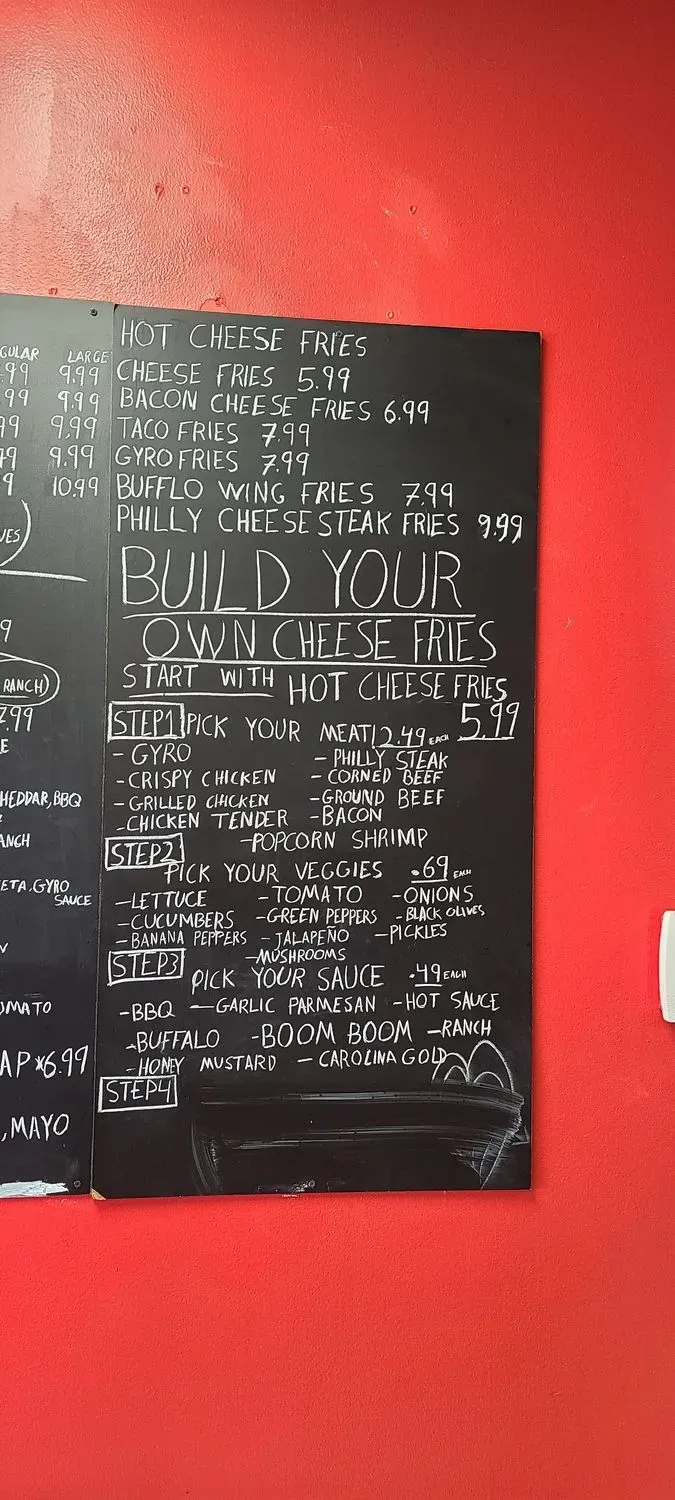 GULAR LARGE
.99 9.99
.99 9.99
99 9.99
9.99
9 10.99
RANCH)
7.99
HEDDAR, BBQ
ETA, GYRO
SAUCE
AP *6.99
, MAYO
HOT CHEESE FRIES
CHEESE FRIES 5.99
BACON CHEESE FRIES 6.99
TACO FRIES 7.99
GYRO FRIES 7.99
BUFFLO WING FRIES 7.99
PHILLY CHEESE STEAK FRIES 9.99
BUILD YOUR
OWN CHEESE FRIES
START WITH HOT CHEESE FRIES
5.99
STEP1 PICK YOUR MEAT 2.49 EACH
- GYRO - PHILLY STEAK
- CRISPY CHICKEN - CORNED BEEF
- GRILLED CHICKEN - GROUND BEEF
- CHICKEN TENDER - BACON
- POPCORN SHRIMP
STEP2
PICK YOUR VEGGIES .69 EACH
- LETTUCE - TOMATO - ONIONS
- CUCUMBERS - GREEN PEPPERS - BLACK OLIVES
- BANANA PEPPERS - JALAPEÑO - PICKLES
- MUSHROOMS
STEP3
PICK YOUR SAUCE .49 EACH
- BBQ - GARLIC PARMESAN - HOT SAUCE
- BUFFALO - BOOM BOOM - RANCH
- HONEY MUSTARD - CAROLINA GOLD
STEP4